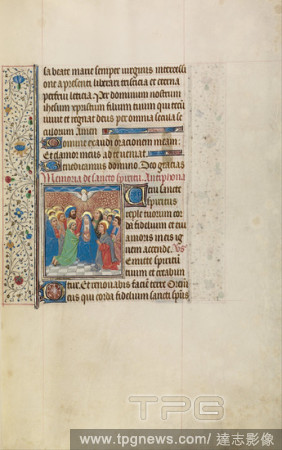 sa beate marie semper virginis intercessi
one a presenti liberari tristicia et eterna
perfrui leticia. Per dominum nostrum
ihesum xpristum filium tuum qui tecū
vivit et regnat deus per omnia secula se
culorum Amen
Domine exaudi orationem meam.
Et clamor meus ad te veniat.
Benedicamus domino. Deo gratias
Memoria de sancto spiritu. Antiphona
Veni sancte
spiritus
reple tuorum cor
da fidelium et tui
amoris in eis ig
nem accende. Vs
Emitte spiritū
tuum et creabun
tur. Et renovabis faciē terre Oreū
Deus qui corda fidelium sancti spūs
TPG
www.tpgnews.com/達志影像